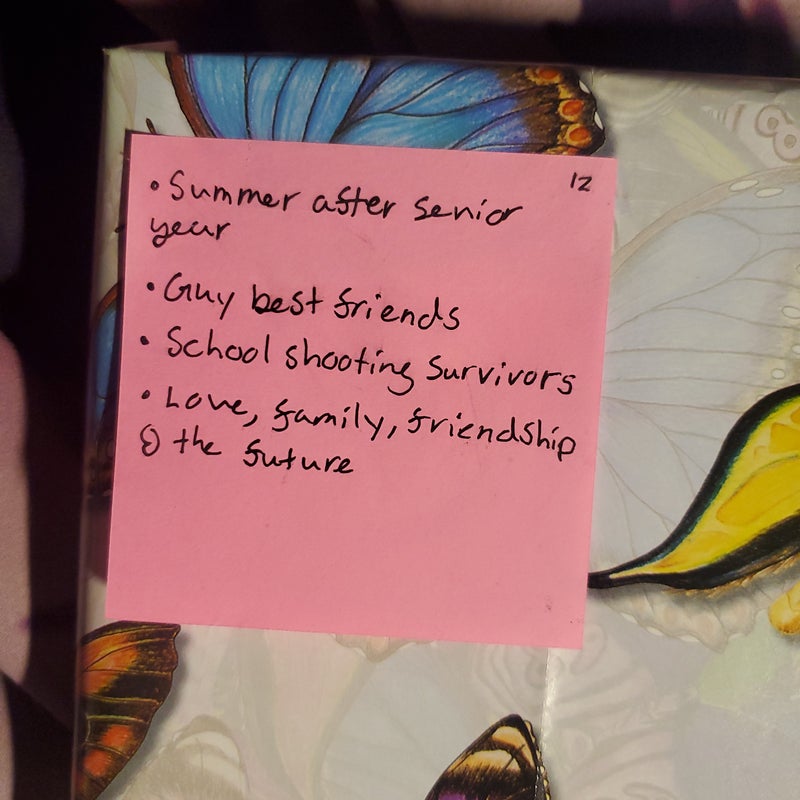 12
• Summer after senior
year
• Guy best friends
• School shooting survivors
• Love, family, friendship
& the future